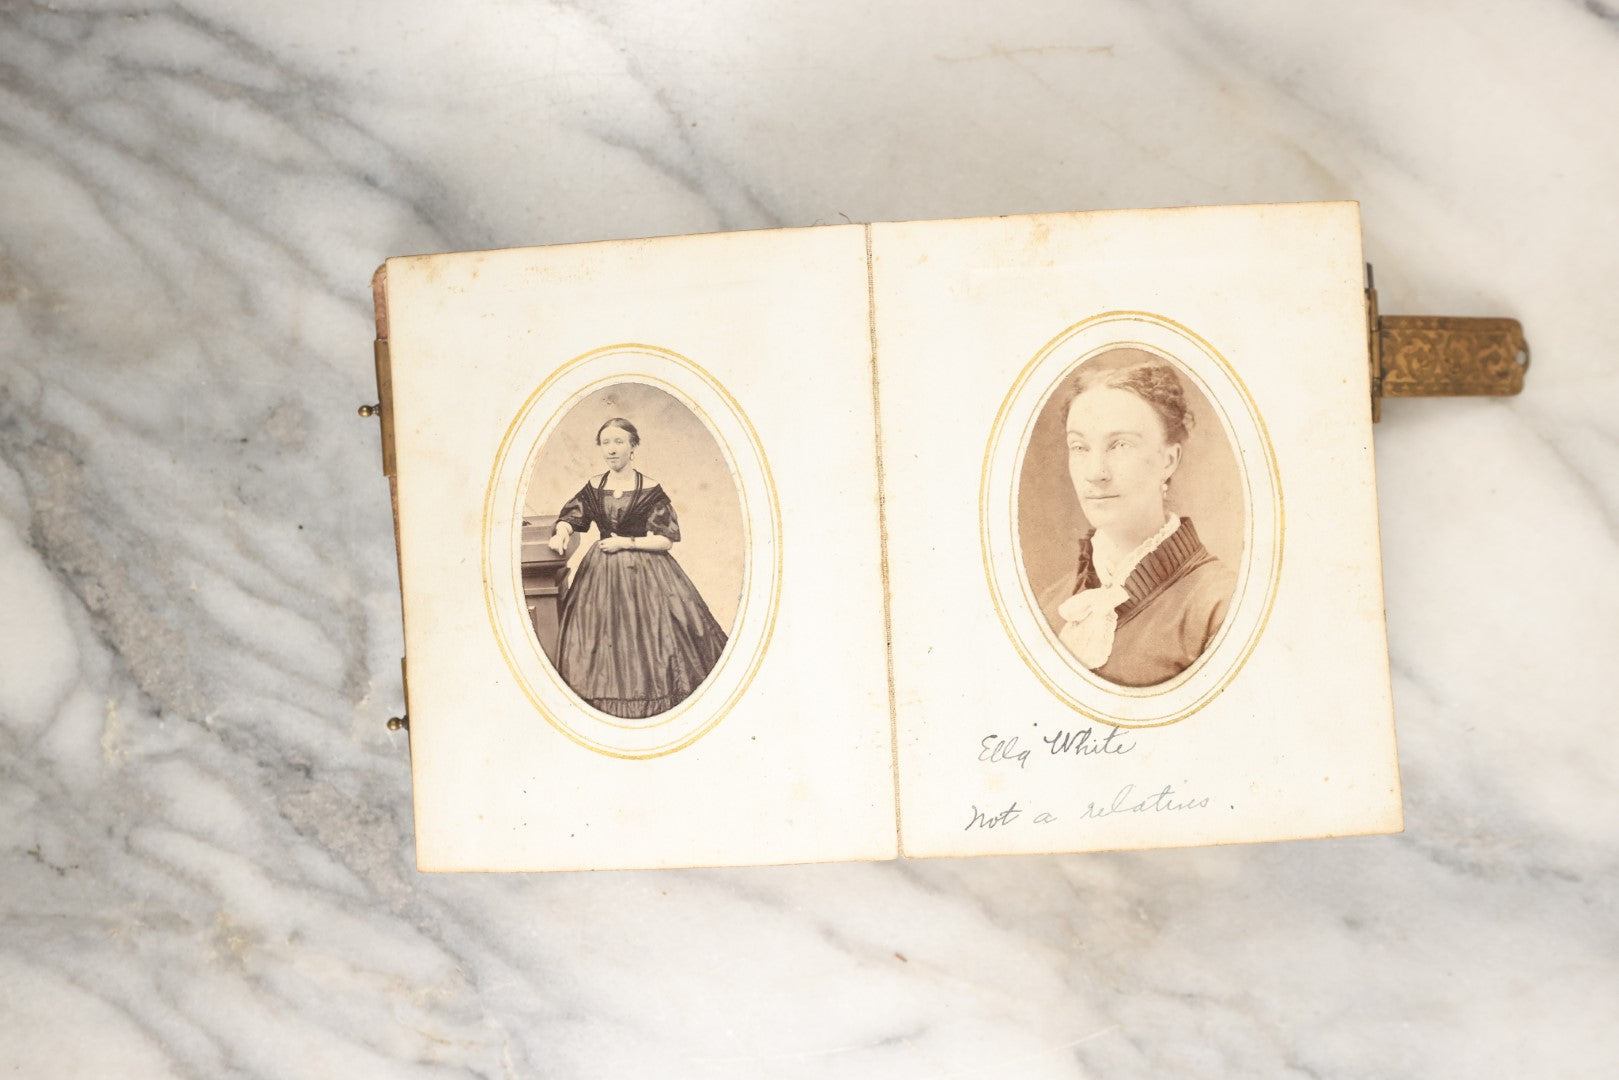 Ella White
Not a relative.